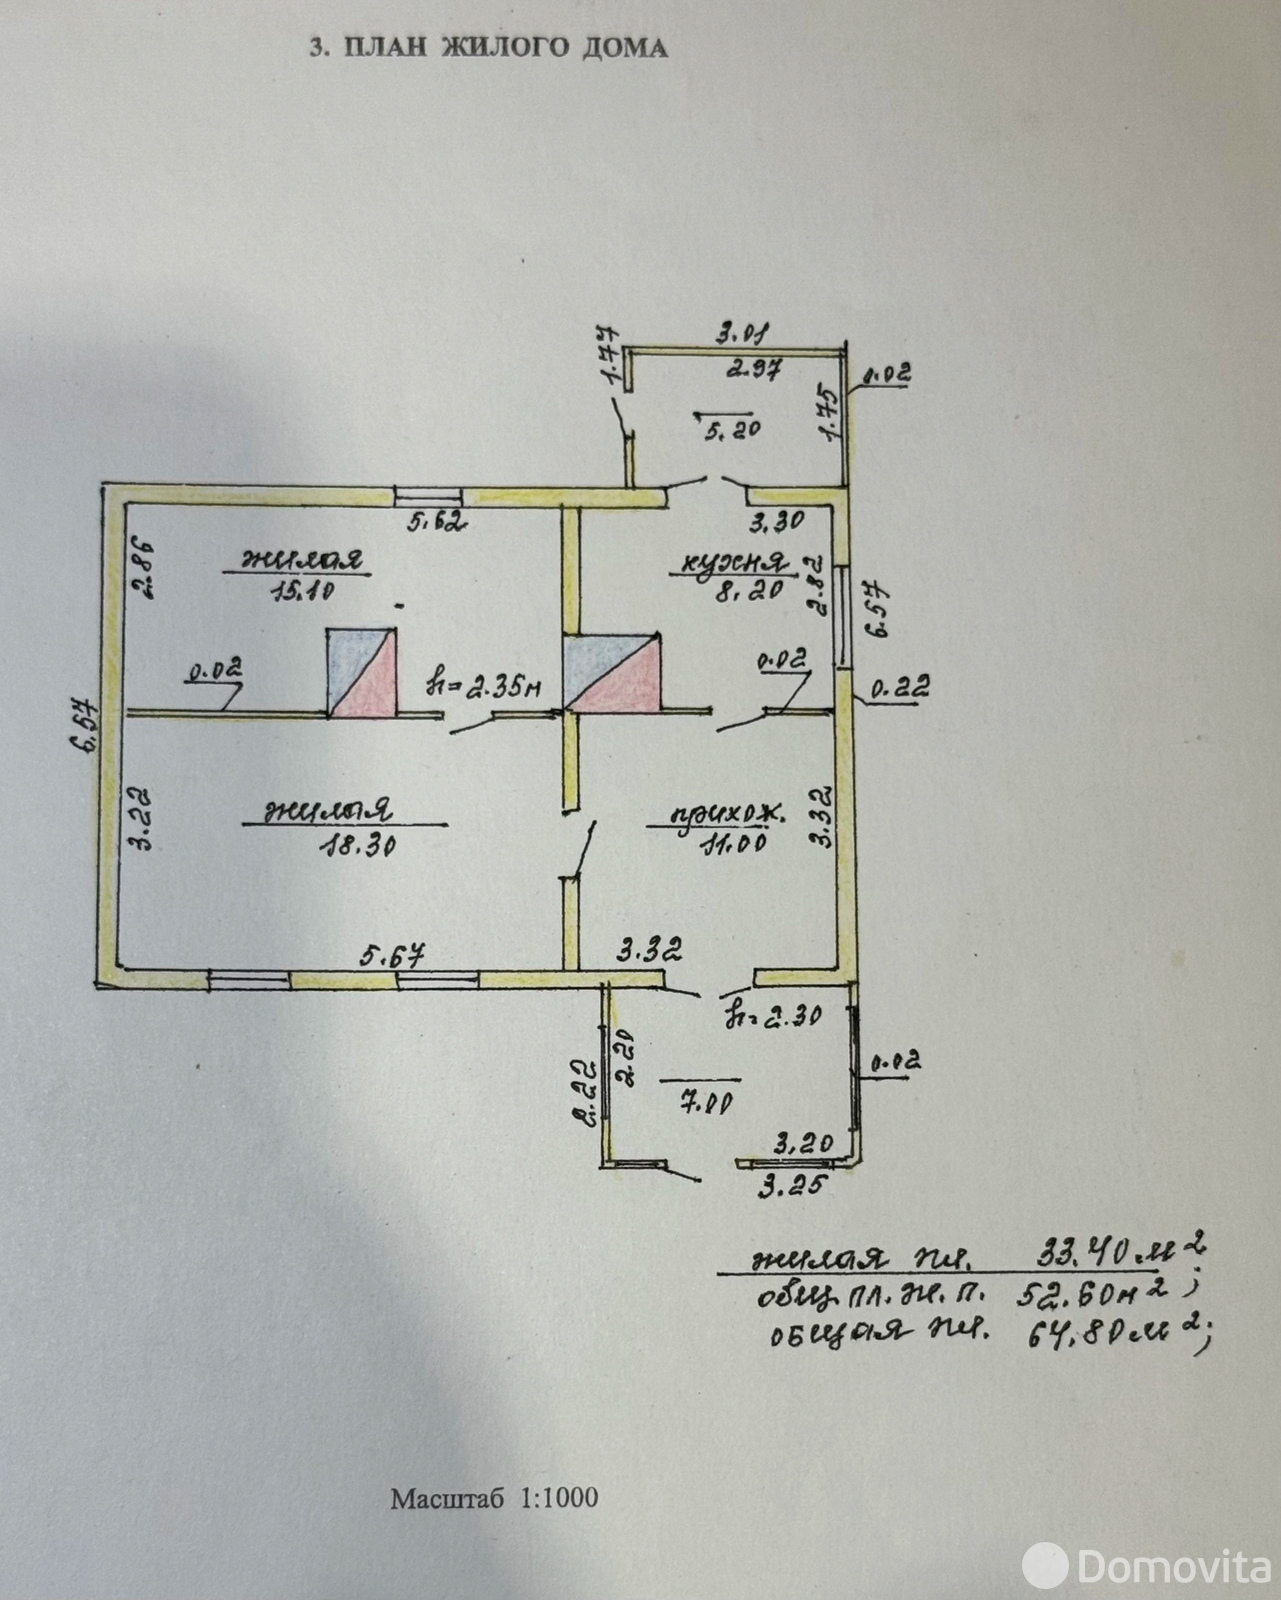 3. ПЛАН ЖИЛОГО ДОМА
1.77
3.01
2.97
0.02
1.75
5.20
5.62
3.30
2.86
жилая
15.10
кухня
8.20
2.82
6.57
0.02
h=2.35м
0.02
0.22
6.57
3.22
жилая
18.30
прихож.
11.00
3.32
5.67
3.32
h=2.30
2.22
2.20
0.02
7.00
3,20
3.25
жилая пл. 33.40м2
общ пл.ж.п. 52.60м2;
общая пл. 64.80м2;
Масштаб 1:1000
Domovita